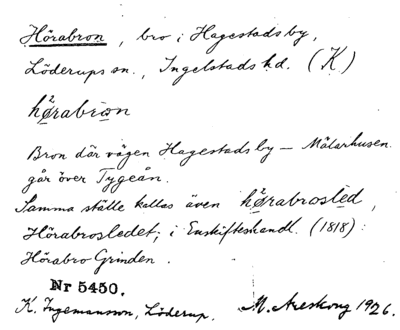 Hörabron, bro i Hagestads by,
Löderups sn., Ingelstads hd. (K)
hǿrabron
Bron där vägen Hagestads by — Mälarhusen
går över Tygeån.
Samma ställe kallas även hǿrabrosled,
Hörabrosledet; i Enskifteshandl. (1818):
Hörabro Grinden.
Nr 5450.
K. Ingemansson, Löderup. M. Areskoug 1926.